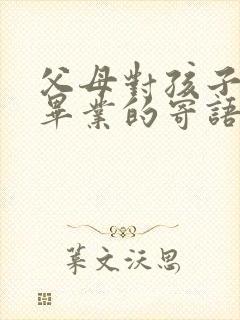 父母對孩子
畢業的寄語
葉文沃思